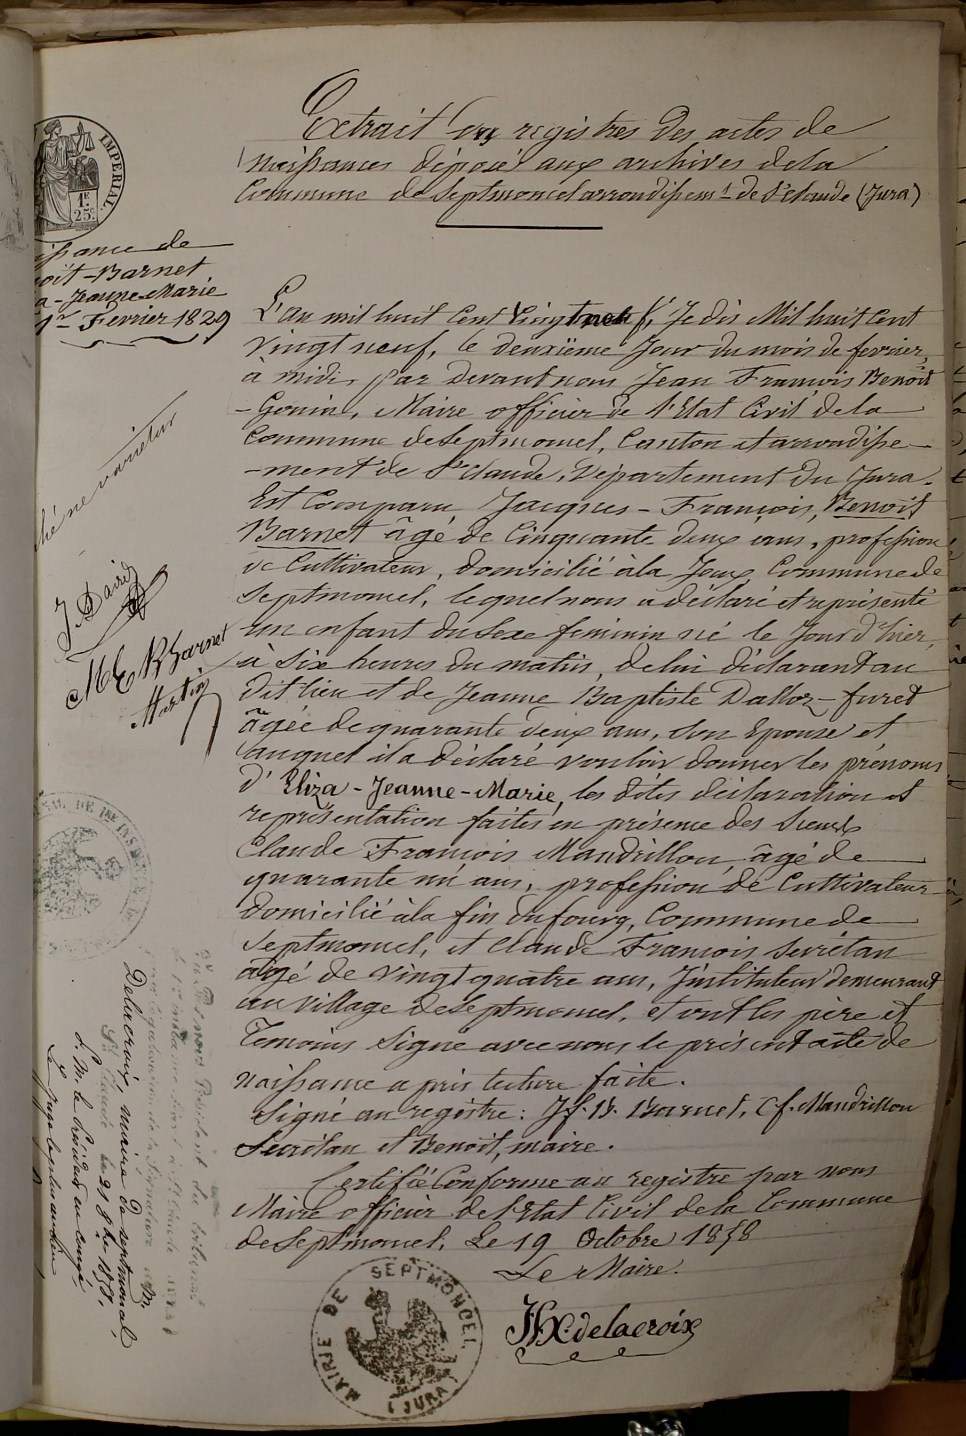 Extrait des registres des actes de
naissances déposé aux archives de la
Commune de Septmoncel arrondissemt de St Claude (Jura)
IMPERIAL
1F
25c
issance de
oit-Barnet
a-Jeanne-Marie
1er Fevrier 1829
L'an mil huit Cent Vingt neuf, Je dis Mil huit Cent
Vingt neuf, le deuxième Jour du mois de fevrier,
à midi, par devant nous Jean François Benoit
-Gonin, Maire officier de l'Etat Civil de la
Commune de Septmoncel, Canton et arrondisse-
-ment de St Claude, Département du Jura.
Est Comparu Jacques-François, Benoit
Barnet âgé de Cinquante deux ans, profession
de Cultivateur, domicilié à la Joux, Commune de
Septmoncel, lequel nous a déclaré et représenté
un enfant du sexe feminin né le Jour d'hier,
à six heures du matin, de lui déclarant au
dit lieu et de Jeanne Baptiste Dalloz-furet
âgée de quarante deux ans, son Epouse et
auquel il a déclaré vouloir donner les prénoms
d'Eliza-Jeanne-Marie, les dites déclaration et
représentation faites en présence des Sieurs
Claude François Mandrillon, âgé de
quarante un ans, profession de Cultivateur
domicilié à la fin du fourg, Commune de
Septmoncel, et Claude François Secrétan
âgé de vingt quatre ans, Instituteur demeurant
au Village de Septmoncel, et ont les père et
Temoins Signé avec nous le présent acte de
naissance apris lecture faite.
Signé au registre: J.f. B. Barnet, C.f. Mandrillon
Secrétan et Benoit, maire.
Certifié Conforme au registre par nous
Maire officier de l'Etat Civil de la Commune
de Septmoncel, Le 19 Octobre 1858
Le Maire.
JHX. delacroix
MAIRIE DE SEPTMONCEL
(JURA)
ne varietur
J. David
M E B Barnet
Martin
DE 1RE INS
Vu par nous Président du tribunal
de 1re instance séant à St Claude
légalisation de la signature de M.
Delacroix, maire de Septmoncel,
St Claude le 21 8bre 1858.
P. M. le Président en congé,
Le Juge